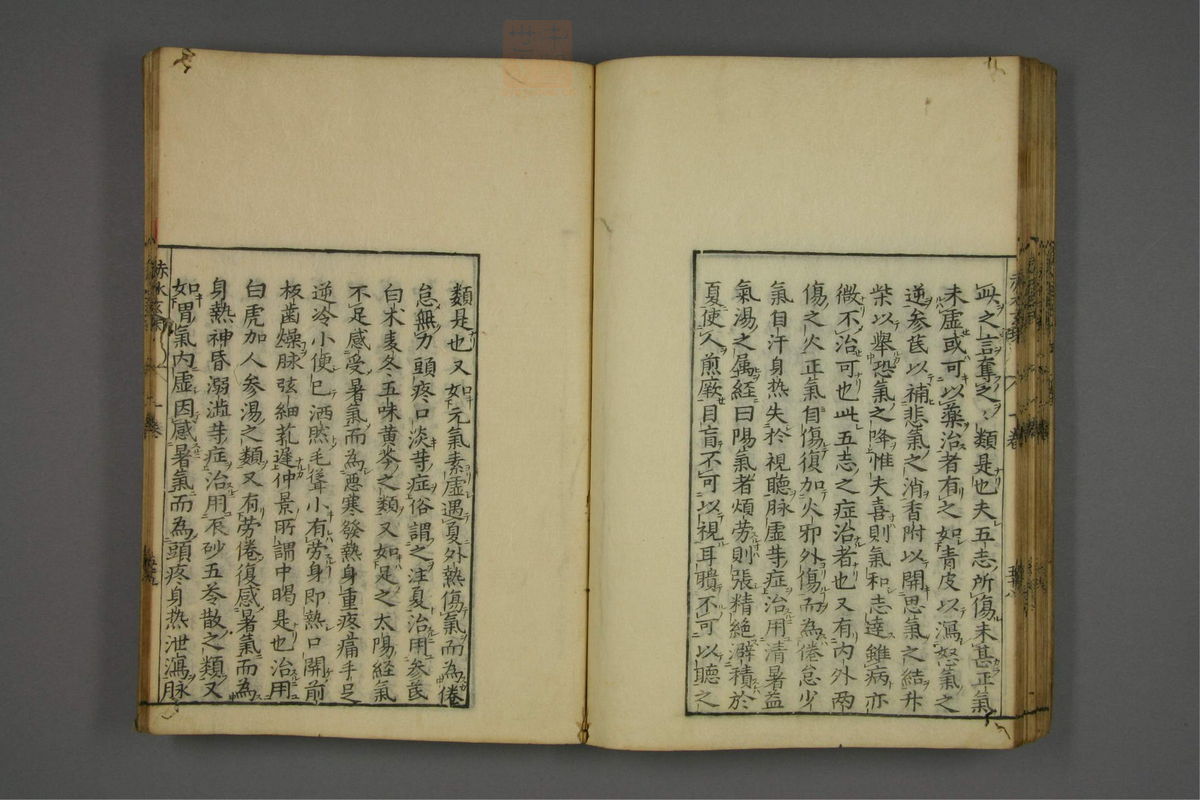 此之言奪之之類是也夫五志所傷未甚正氣
未虚或可以藥治者有之如青皮以瀉怒氣之
逆参芪以補悲氣之消香附以開思氣之結升
柴以舉恐氣之降惟夫喜則氣和志達雖病亦
微不治可也此五志之症治者也又有内外兩
傷之火正氣自傷復加火邪外傷而為倦怠少
氣自汗身热失於視聴脉虚等症治用清暑益
氣湯之属経曰陽氣者煩劳則張精絶澼積於
夏使人煎厥目盲不可以視耳聵不可以聽之
類是也又如元氣素虚遇夏外熱傷氣而為倦
怠無力頭疼口淡等症俗謂之注夏治用参芪
白术麦冬五味黄芩之類又如足之太陽経氣
不足感受暑氣而為悪寒發熱身重疼痛手足
逆冷小便已洒然毛聳小有劳身即熱口開前
板齒燥脉弦細芤遅仲景所謂中暍是也治用
白虎加人参湯之類又有劳倦復感暑氣而為
身熱神昏溺澁等症治用辰砂五苓散之類又
如胃氣内虚因感暑氣而為頭疼身热泄瀉脉